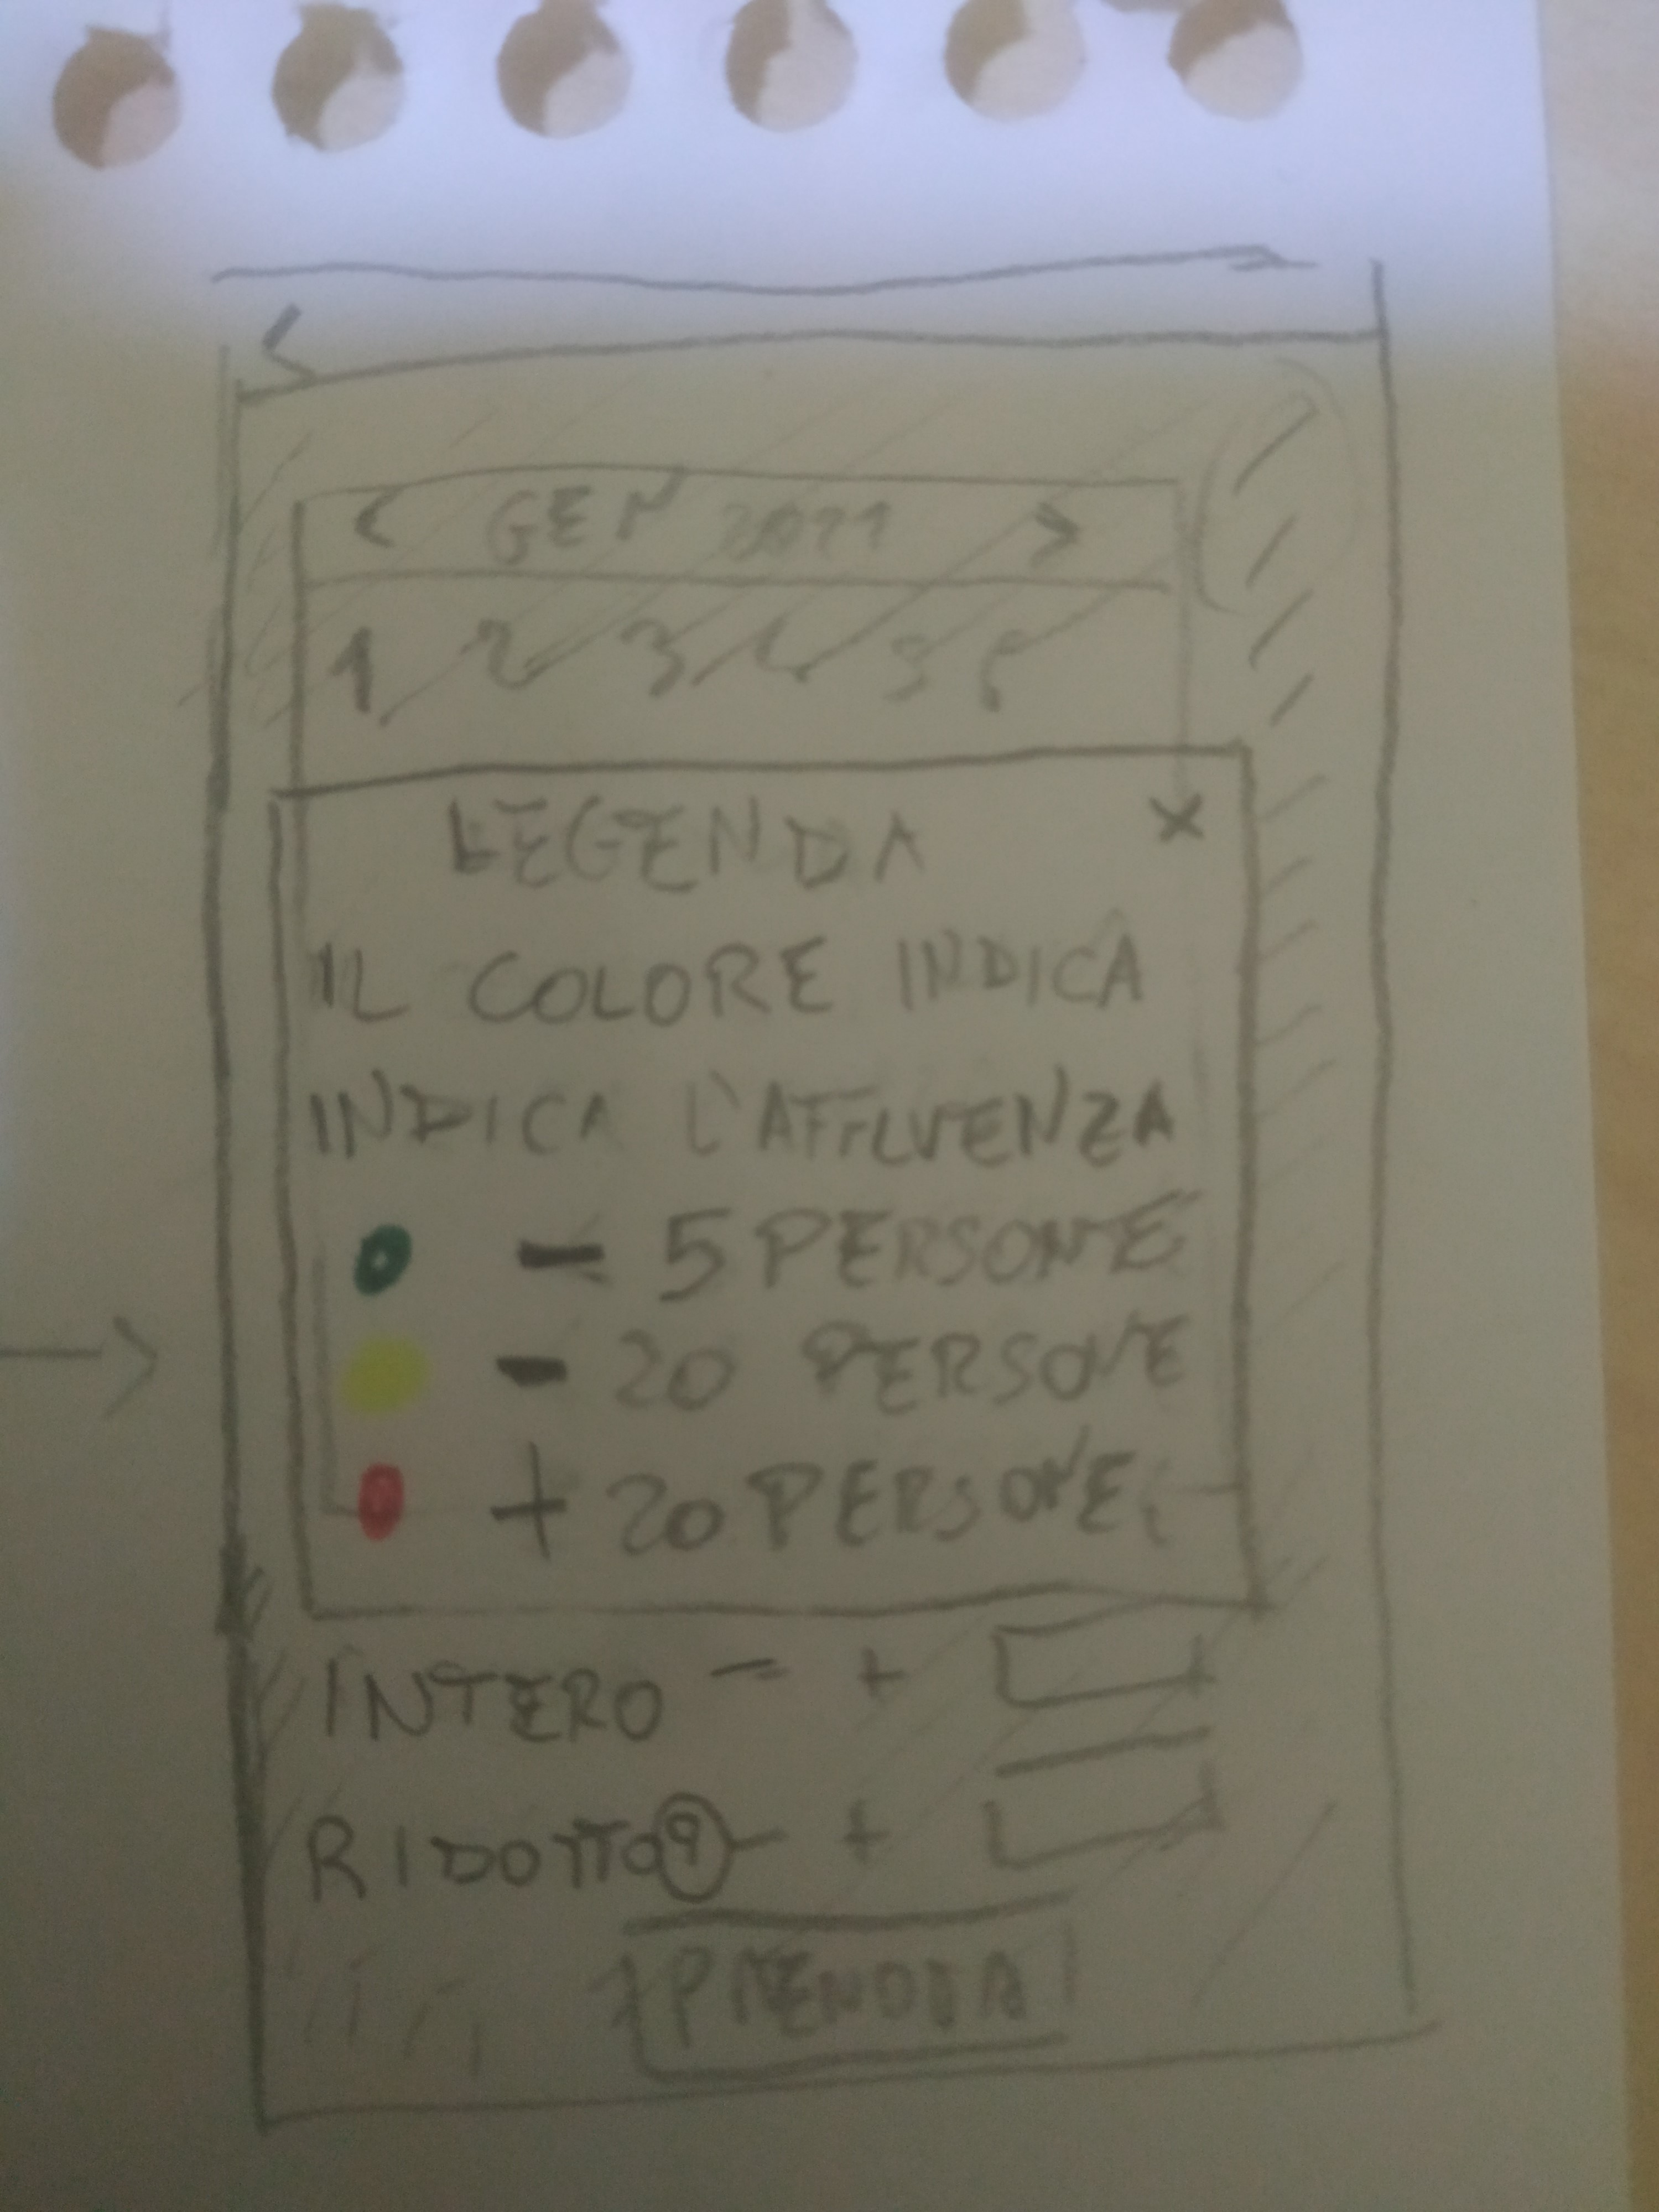 < GEN 2021 >
1 2 3 4 5 6
LEGENDA X
IL COLORE INDICA
INDICA L'AFFLUENZA
- 5 PERSONE
- 20 PERSONE
+ 20 PERSONE
INTERO - +
RIDOTTO - +